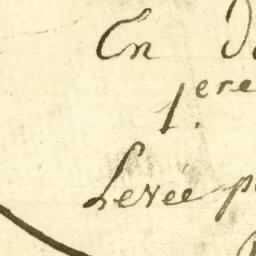 En
1.ere
Levée